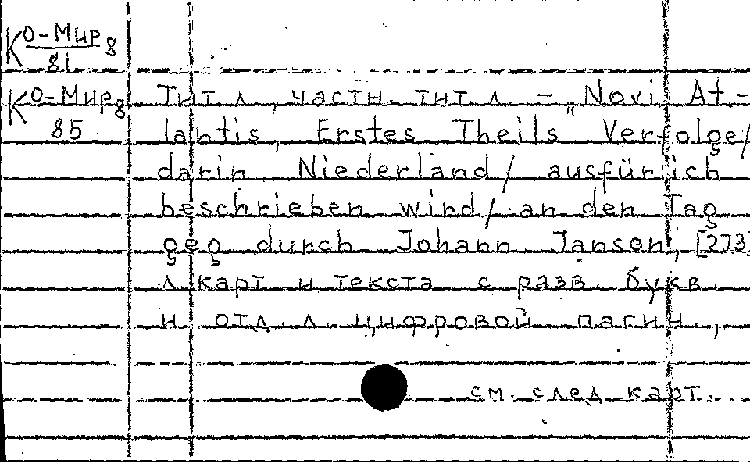 К О-Мир/81 8
К О-Мир/85 8
Тит л, частн. тит л. – „Novi At-
lantis, Erstes Theils Verfolge/
darin Niederland/ ausfürlich
beschrieben wird/ an den Tag
geg durch Johann Janson, [273]
л карт и текста с разв букв
и отд л. цифровой пагин,
см. след карт.